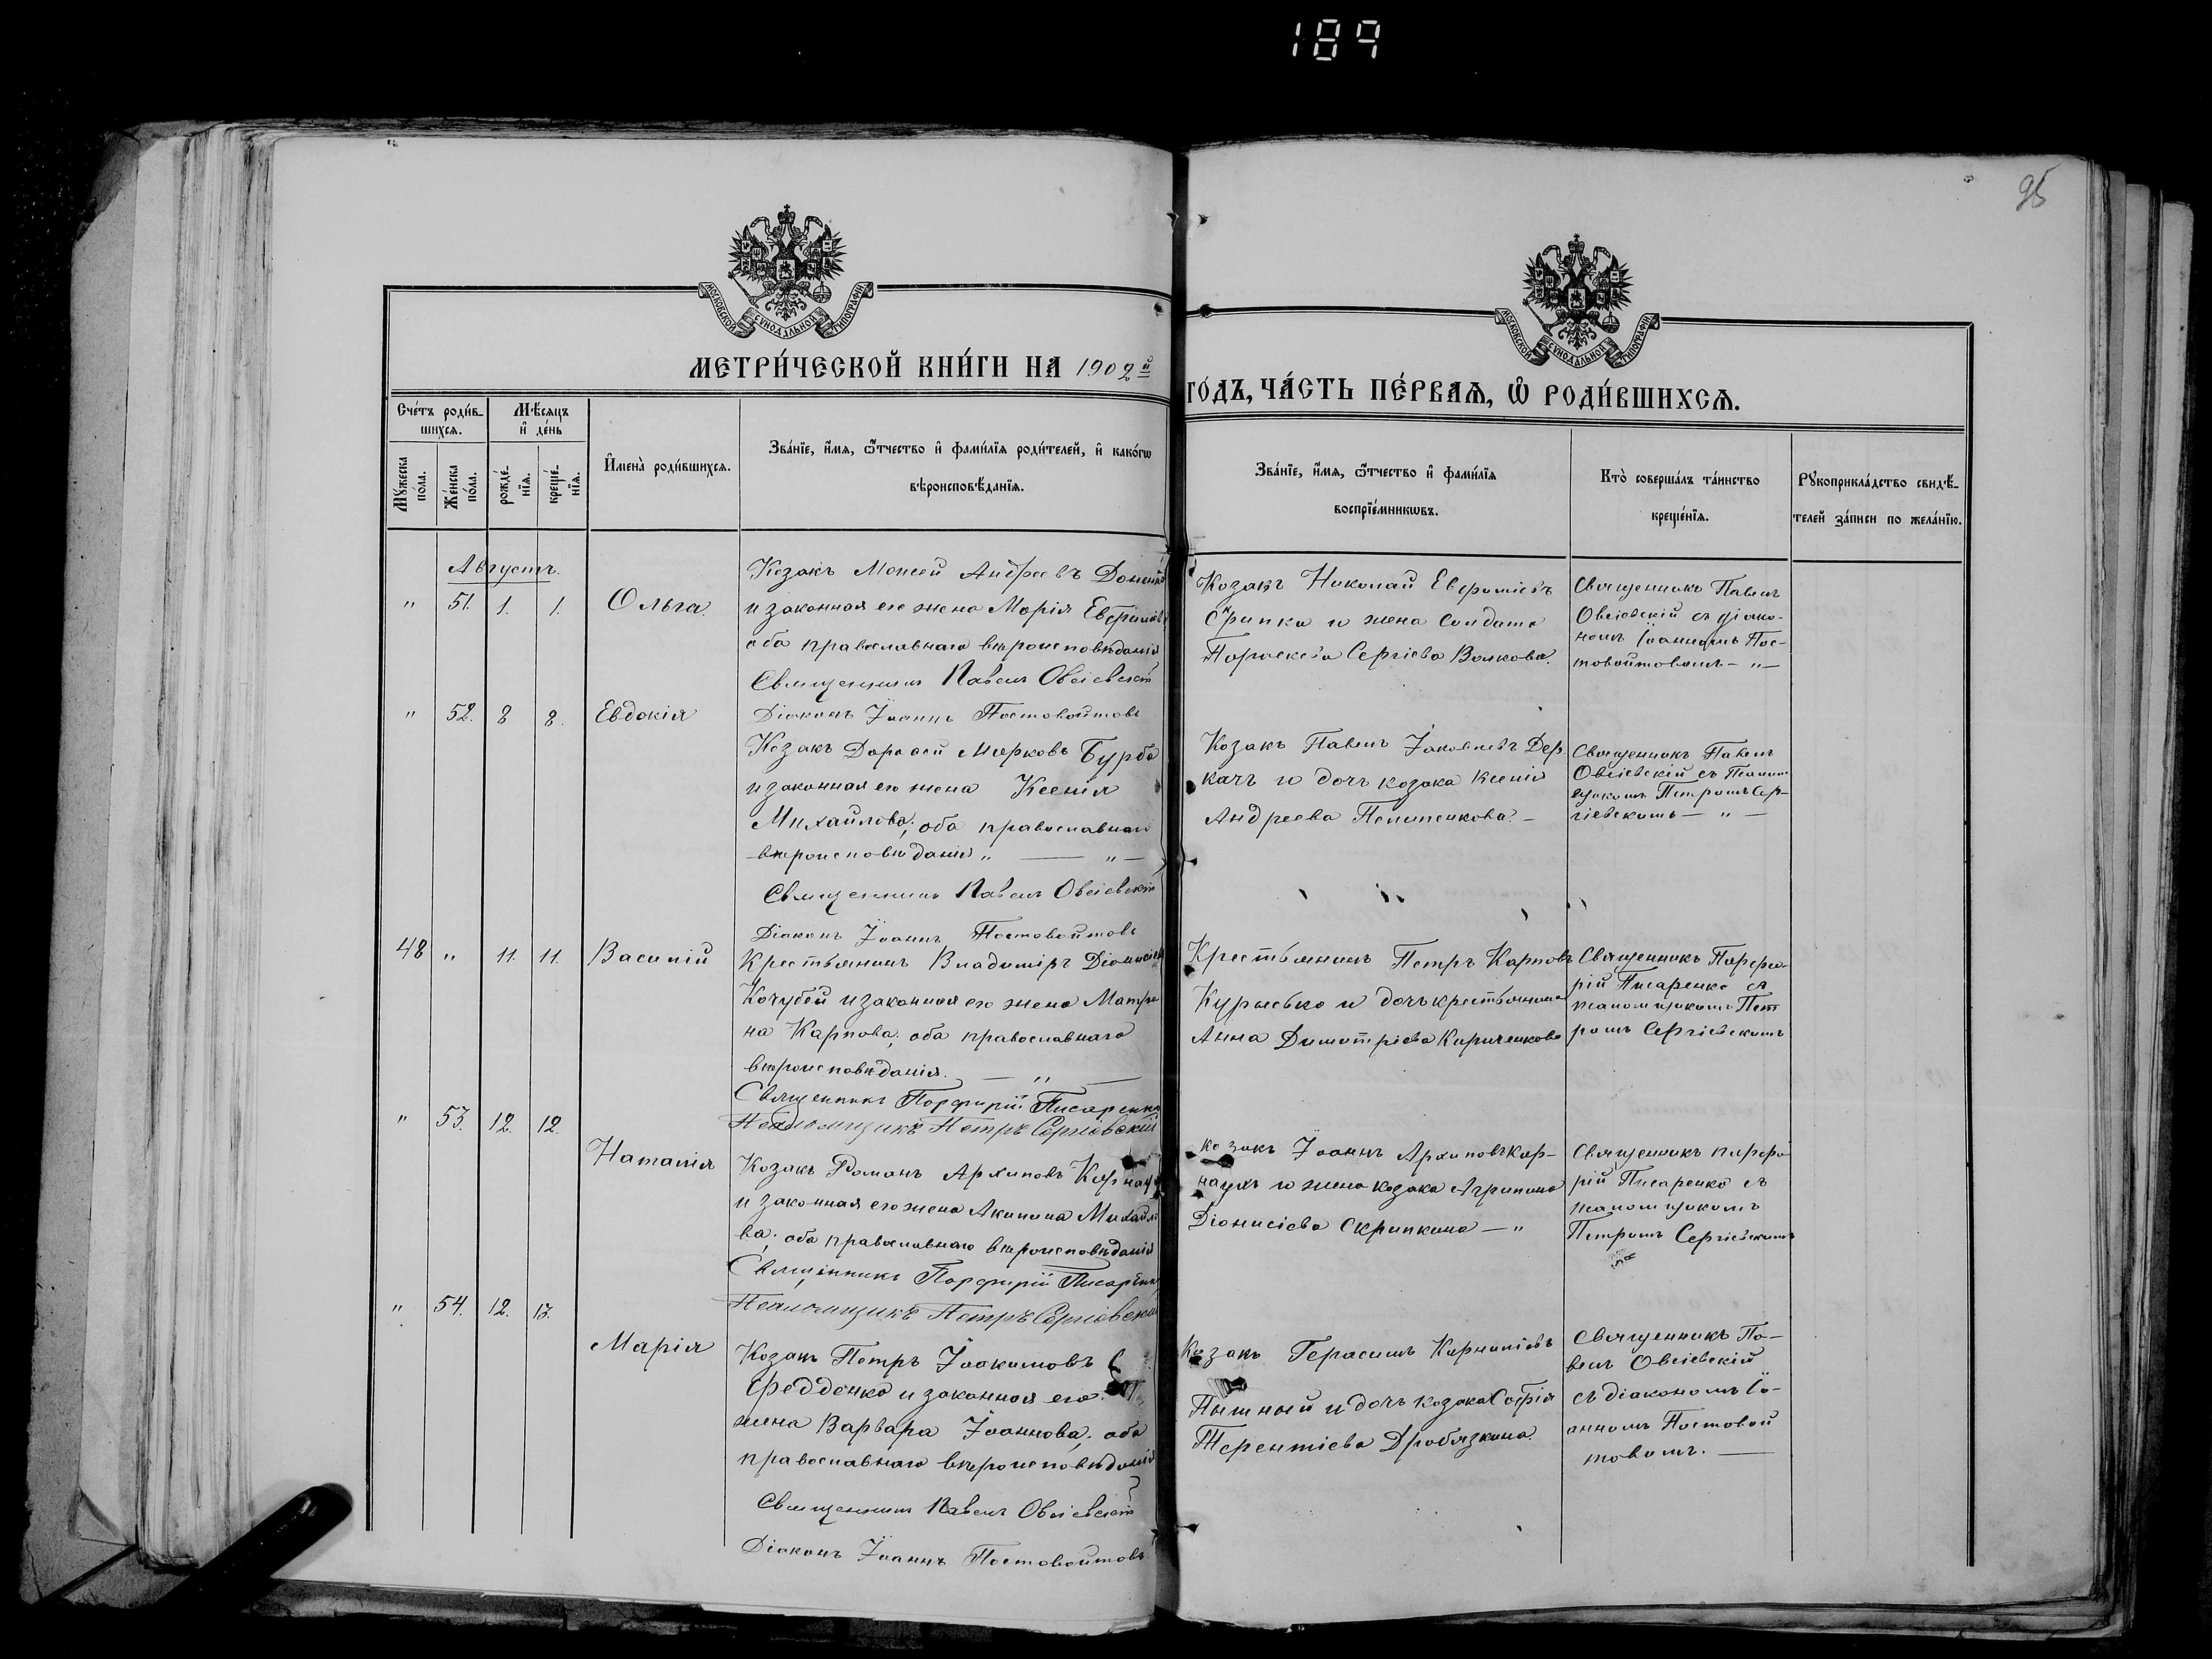 189
95
МОСКОВСКОЙ СѴНОДАЛЬНОЙ ТИПОГРАФІИ
МОСКОВСКОЙ СѴНОДАЛЬНОЙ ТИПОГРАФІИ
МЕТРИ́ЧЕСКОЙ КНИ́ГИ НА 1902й
ГО́ДЪ, ЧА́СТЬ ПЕ́РВАѦ, Ѡ҆ РОДИ́ВШИХСѦ.
Сче́тъ роди́в-
шихсѧ.
Мꙋ́жеска по́ла.
Же́нска по́ла.
Мѣ́сяцъ и҆ де́нь
рожде́-нїѧ.
креще́-нїѧ.
И҆мена̀ роди́вшихсѧ.
Зва́нїе, и҆́мѧ, ѻ҆́тчество и҆ фами́лїѧ роди́телей, и҆ како́гѡ
вѣроисповѣ́данїѧ.
Зва́нїе, и҆́мѧ, ѻ҆́тчество и҆ фами́лїѧ
воспрїе́мникѡвъ.
Кто̀ соверша́лъ та́инство
креще́нїѧ.
Рꙋкоприкла́дство свидѣ́-
телей за́писи по жела́нїю.
Августъ.
" 51. 1. 1. Ольга.
Козакъ Моисей Андреевъ
и законная его жена Марія
оба православнаго вѣроисповѣданія
Священникъ Павелъ Овсіевскій
Діаконъ Іоаннъ Постовойтовъ
Козакъ Николай Евфиміевъ
Скрипка и жена солдата
Параскева Сергіева Волкова.
Священникъ Павелъ
Овсіевскій съ діако-
номъ Іоанномъ Пос-
товойтовымъ – " –
" 52. 8 8. Евдокія
Козакъ Дороѳей Марковъ Бурба
и законная его жена Ксенія
Михайлова; оба православнаго
вѣроисповѣданія " — " –
Священникъ Павелъ Овсіевскій
Діаконъ Іоаннъ Постовойтовъ
Козакъ Павелъ Іаковлевъ Дер-
качъ и дочь козака Ксенія
Андреева –
Священникъ Павелъ
Овсіевскій съ Псалом
щикомъ Петромъ Сер-
гіевскимъ – " –
48 " 11. 11. Василій
Крестьянинъ Владиміръ
Кочубей и законная его жена Матро
на Карпова; оба православнаго
вѣроисповѣданія. — " —
Священникъ Порфирій Писаренко
Псаломщикъ Петръ Сергіевскій
Крестьянинъ Петръ Карповъ
и дочь крестьянина
Анна Димитріева Кириченкова
Священникъ Порфи-
рій Писаренко съ
псаломщикомъ Пет
ромъ Сергіевскимъ
" 53. 12. 12. Наталія
Козакъ Романъ Архиповъ
и законная его жена Акилина
ва; оба православнаго вѣроисповѣданія
Священникъ Порфирій Писаренко
Псаломщикъ Петръ Сергіевскій
козакъ Іоаннъ Архиповъ Кар-
наухъ и жена козака Агрипина
Діонисіева Скрипкина – "
Священникъ Порфи
рій Писаренко съ
псаломщикомъ
Петромъ Сергіевскимъ
" 54. 12. 13. Марія
Козакъ Петръ Іоакимовъ
и законная его
жена Варвара Іоаннова; оба
православнаго вѣроисповѣданія
Священникъ Павелъ Овсіевскій
Діаконъ Іоаннъ Постовойтовъ
Козакъ Герасимъ
Пышный и дочь козака Софія
Терентіева Дробязкина.
Священникъ Па-
велъ Овсіевскій
съ діакономъ Іо-
анномъ Постовой
товымъ. —